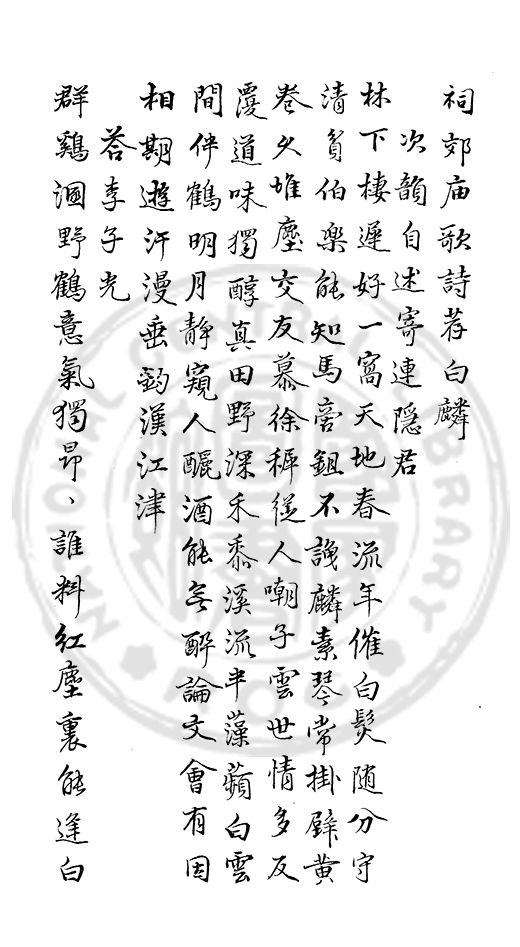 祠郊庙歌詩荐白麟
次韻自述寄連隱君
林下棲遲好一窩天地春流年催白髮随分守
清貧伯楽能知馬旁鉏不識麟素琴常掛壁黄
卷久堆塵交友慕徐穉從人嘲子雲世情多反
覆道味獨醇真田野深禾黍溪流半藻蘋白雲
間伴鶴明月静窺人釃酒能無醉論文會有因
相期遊汗漫垂釣漢江津
荅李子光
群鷄溷野鶴意氣獨昂、誰料紅塵裏能逢白
NATIONAL CENTRAL LIBRARY